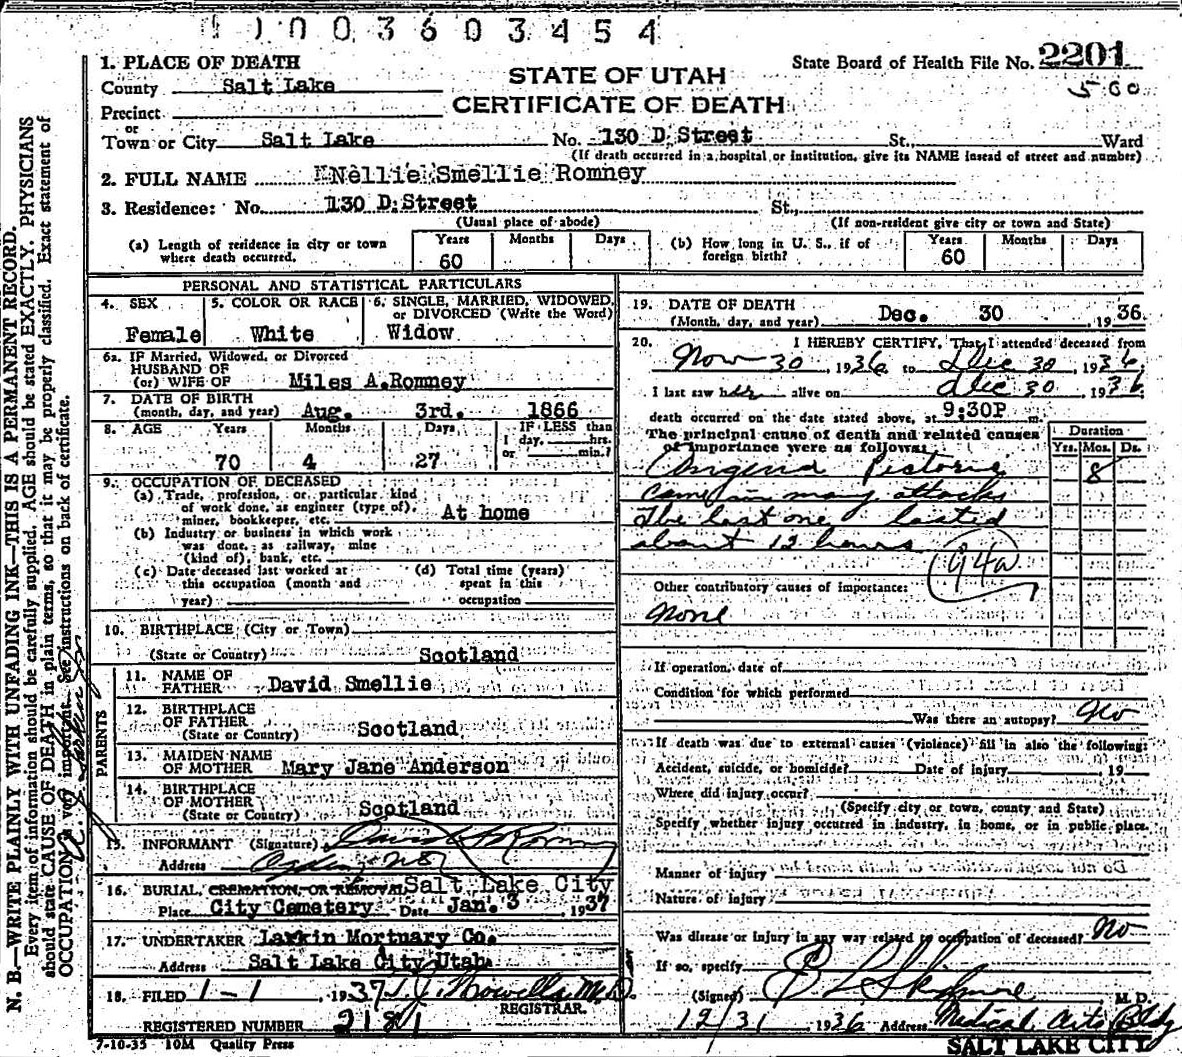 1003603454
State Board of Health File No. 2201
500
STATE OF UTAH
CERTIFICATE OF DEATH
1. PLACE OF DEATH
County Salt Lake
Precinct
or
Town or City Salt Lake No. 130 D. Street St., Ward
(If death occurred in a hospital or institution, give its NAME instead of street and number)
2. FULL NAME Nellie Smellie Romney
3. Residence: No. 130 D. Street St.,
(Usual place of abode) (If non-resident give city or town and State)
(a) Length of residence in city or town where death occurred. Years 60 Months Days
(b) How long in U. S., if of foreign birth? Years 60 Months Days
PERSONAL AND STATISTICAL PARTICULARS
4. SEX Female
5. COLOR OR RACE White
6. SINGLE, MARRIED, WIDOWED, or DIVORCED (Write the Word) Widow
6a. IF Married, Widowed, or Divorced
HUSBAND OF
(or) WIFE OF Miles A. Romney
7. DATE OF BIRTH
(month, day, and year) Aug. 3rd. 1866
8. AGE Years 70 Months 4 Days 27 IF LESS than 1 day, hrs. or min.?
9. OCCUPATION OF DECEASED
(a) Trade, profession, or particular kind of work done, as engineer (type of), miner, bookkeeper, etc. At home
(b) Industry or business in which work was done, as railway, mine (kind of), bank, etc.
(c) Date deceased last worked at this occupation (month and year)
(d) Total time (years) spent in this occupation
10. BIRTHPLACE (City or Town)
(State or Country) Scotland
PARENTS
11. NAME OF FATHER David Smellie
12. BIRTHPLACE OF FATHER
(State or Country) Scotland
13. MAIDEN NAME OF MOTHER Mary Jane Anderson
14. BIRTHPLACE OF MOTHER
(State or Country) Scotland
15. INFORMANT (Signature) David S Romney
Address Ogden
16. BURIAL, CREMATION, OR REMOVAL Salt Lake City
Place City Cemetery Date Jan. 3, 1937
17. UNDERTAKER Larkin Mortuary Co.
Address Salt Lake City Utah
18. FILED 1-1, 1937 M.D.
REGISTRAR.
REGISTERED NUMBER 2181
7-10-35 10M Quality Press
19. DATE OF DEATH
(Month, day, and year) Dec. 30, 1936
20. I HEREBY CERTIFY, That I attended deceased from
Nov 30, 1936 to Dec 30, 1936
I last saw her alive on Dec 30, 1936
death occurred on the date stated above, at 9:30P m.
The principal cause of death and related causes of importance were as follows:
Duration
Yrs. Mos. Ds.
Angina Pectoris 8
came in many attacks
The last one lasted
about 12 hours
94a
Other contributory causes of importance:
None
If operation, date of
Condition for which performed
Was there an autopsy? No
If death was due to external causes (violence) fill in also the following:
Accident, suicide, or homicide? Date of injury, 19
Where did injury occur?
(Specify city or town, county and State)
Specify whether injury occurred in industry, in home, or in public place.
Manner of injury
Nature of injury
Was disease or injury in any way related to occupation of deceased? No
If so, specify
(Signed) E L Skidmore M. D.
12/31 1936 Address Medical Arts Bldg
SALT LAKE CITY
N. B.—WRITE PLAINLY WITH UNFADING INK—THIS IS A PERMANENT RECORD.
Every item of information should be carefully supplied. AGE should be stated EXACTLY. PHYSICIANS
should state CAUSE OF DEATH in plain terms, so that it may be properly classified. Exact statement of
OCCUPATION is very important. See instructions on back of certificate.